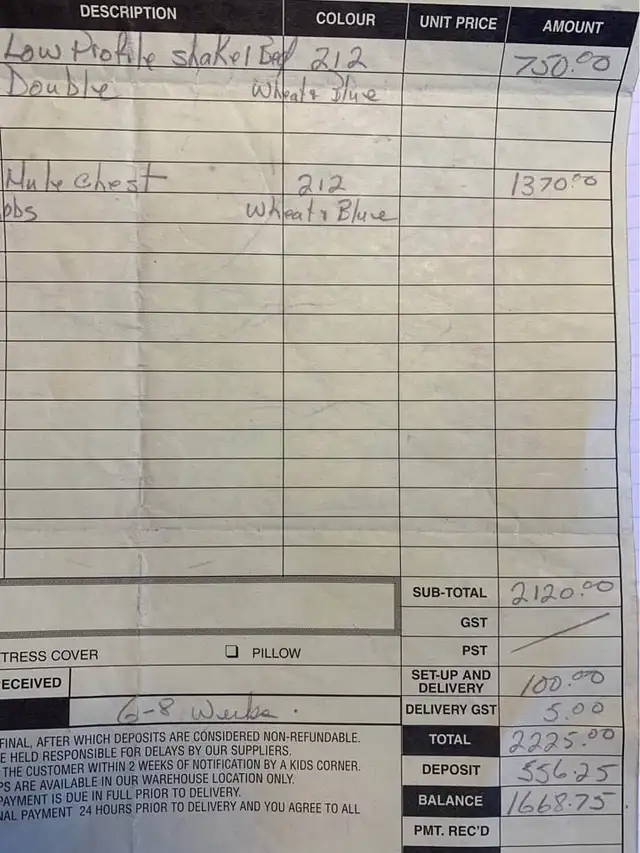 DESCRIPTION COLOUR UNIT PRICE AMOUNT
Low Profile Shaker Bed 212 750.00
Double Wheat & Blue
Mule Chest 212 1370.00
Wheat & Blue
SUB-TOTAL 2120.00
GST
TRESS COVER ❏ PILLOW PST
ECEIVED SET-UP AND DELIVERY 100.00
6-8 Weeks. DELIVERY GST 5.00
FINAL, AFTER WHICH DEPOSITS ARE CONSIDERED NON-REFUNDABLE. TOTAL 2225.00
E HELD RESPONSIBLE FOR DELAYS BY OUR SUPPLIERS.
THE CUSTOMER WITHIN 2 WEEKS OF NOTIFICATION BY A KIDS CORNER. DEPOSIT 556.25
PS ARE AVAILABLE IN OUR WAREHOUSE LOCATION ONLY.
PAYMENT IS DUE IN FULL PRIOR TO DELIVERY. BALANCE 1668.75
NAL PAYMENT 24 HOURS PRIOR TO DELIVERY AND YOU AGREE TO ALL
PMT. REC'D